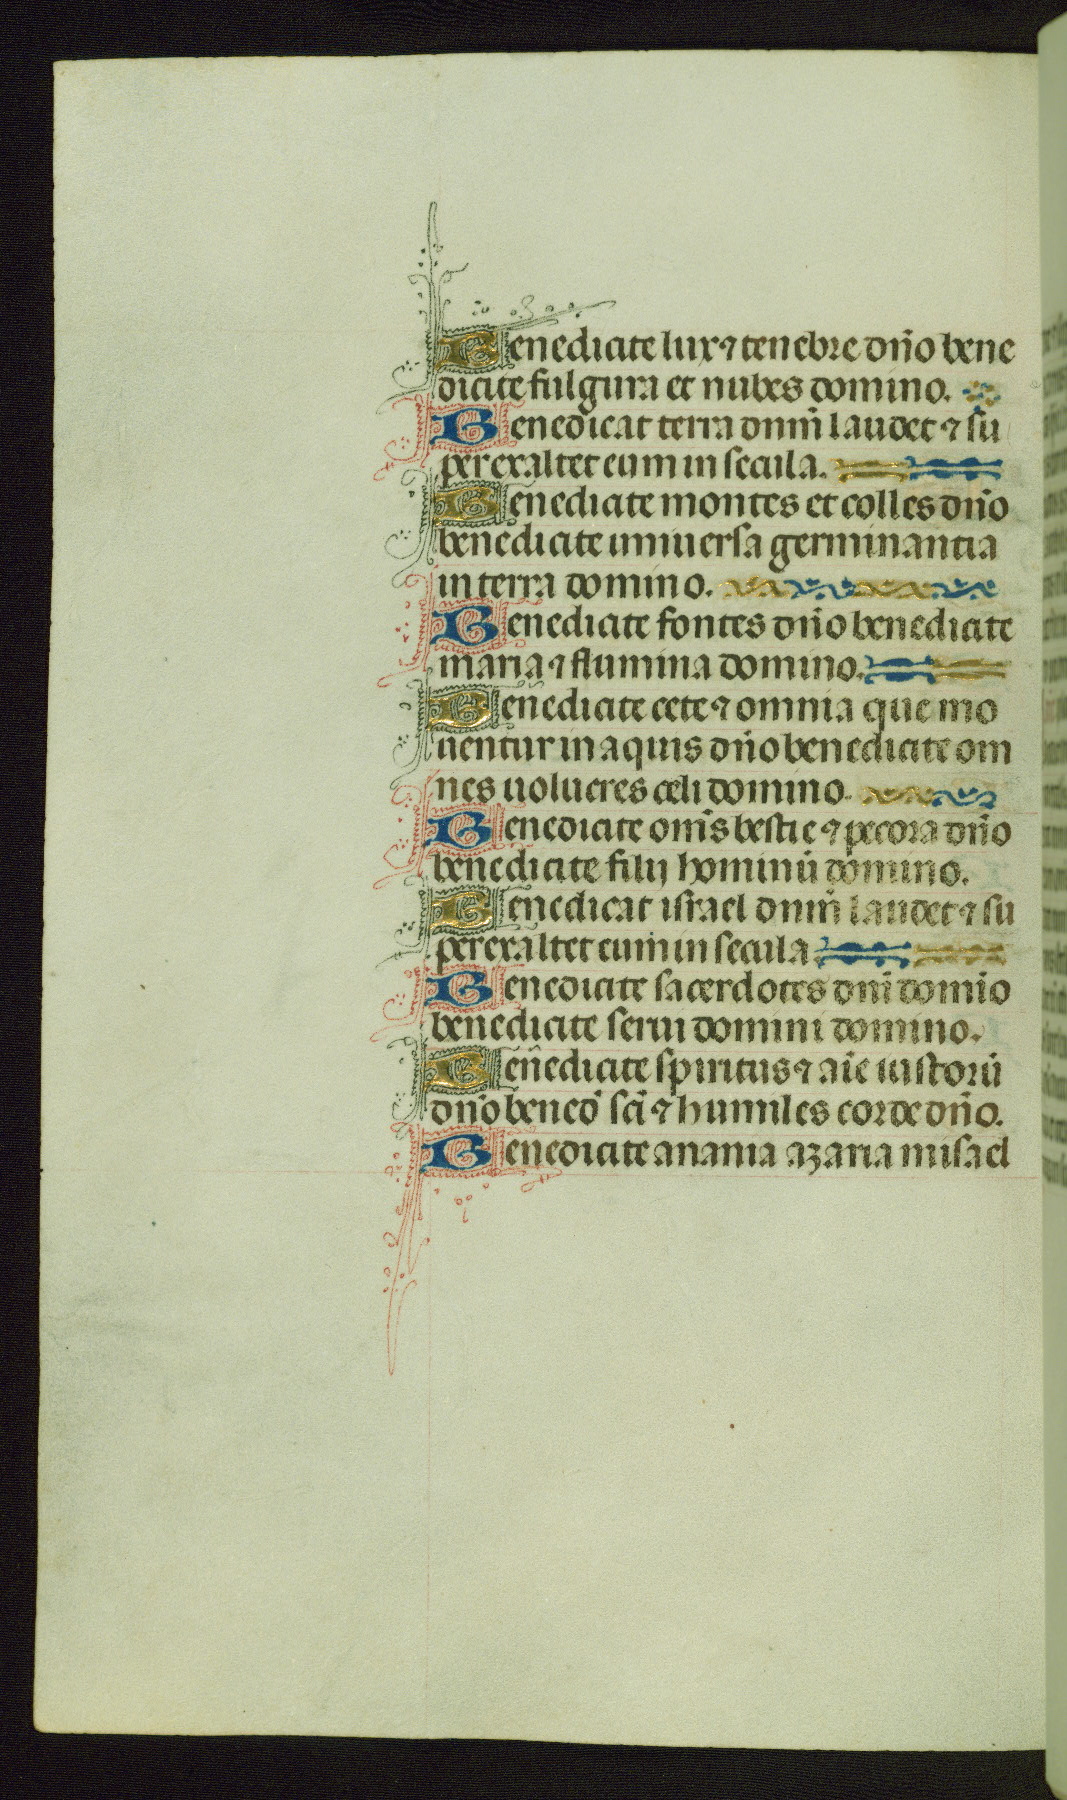 Benedicite lux ⁊ tenebre dn̄o bene
dicite fulgura et nubes domino.
Benedicat terra dnm̄ laudet ⁊ su
perexaltet eum in secula.
Benedicite montes et colles dn̄o
benedicite uniuersa germinantia
in terra domino.
Benedicite fontes dn̄o benedicite
maria ⁊ flumina domino.
Benedicite cete ⁊ omnia que mo
uentur in aquis dn̄o benedicite om
nes uolucres celi domino.
Benedicite om̄s bestie ⁊ pecora dn̄o
benedicite filij hominū domino.
Benedicat israel dnm̄ laudet ⁊ su
perexaltet eum in secula
Benedicite sacerdotes dnī domīo
benedicite serui domini domino.
Benedicite spiritus ⁊ aīe iustorū
dn̄o bened̄ scī ⁊ humiles corde dn̄o.
Benedicite anania azaria misael